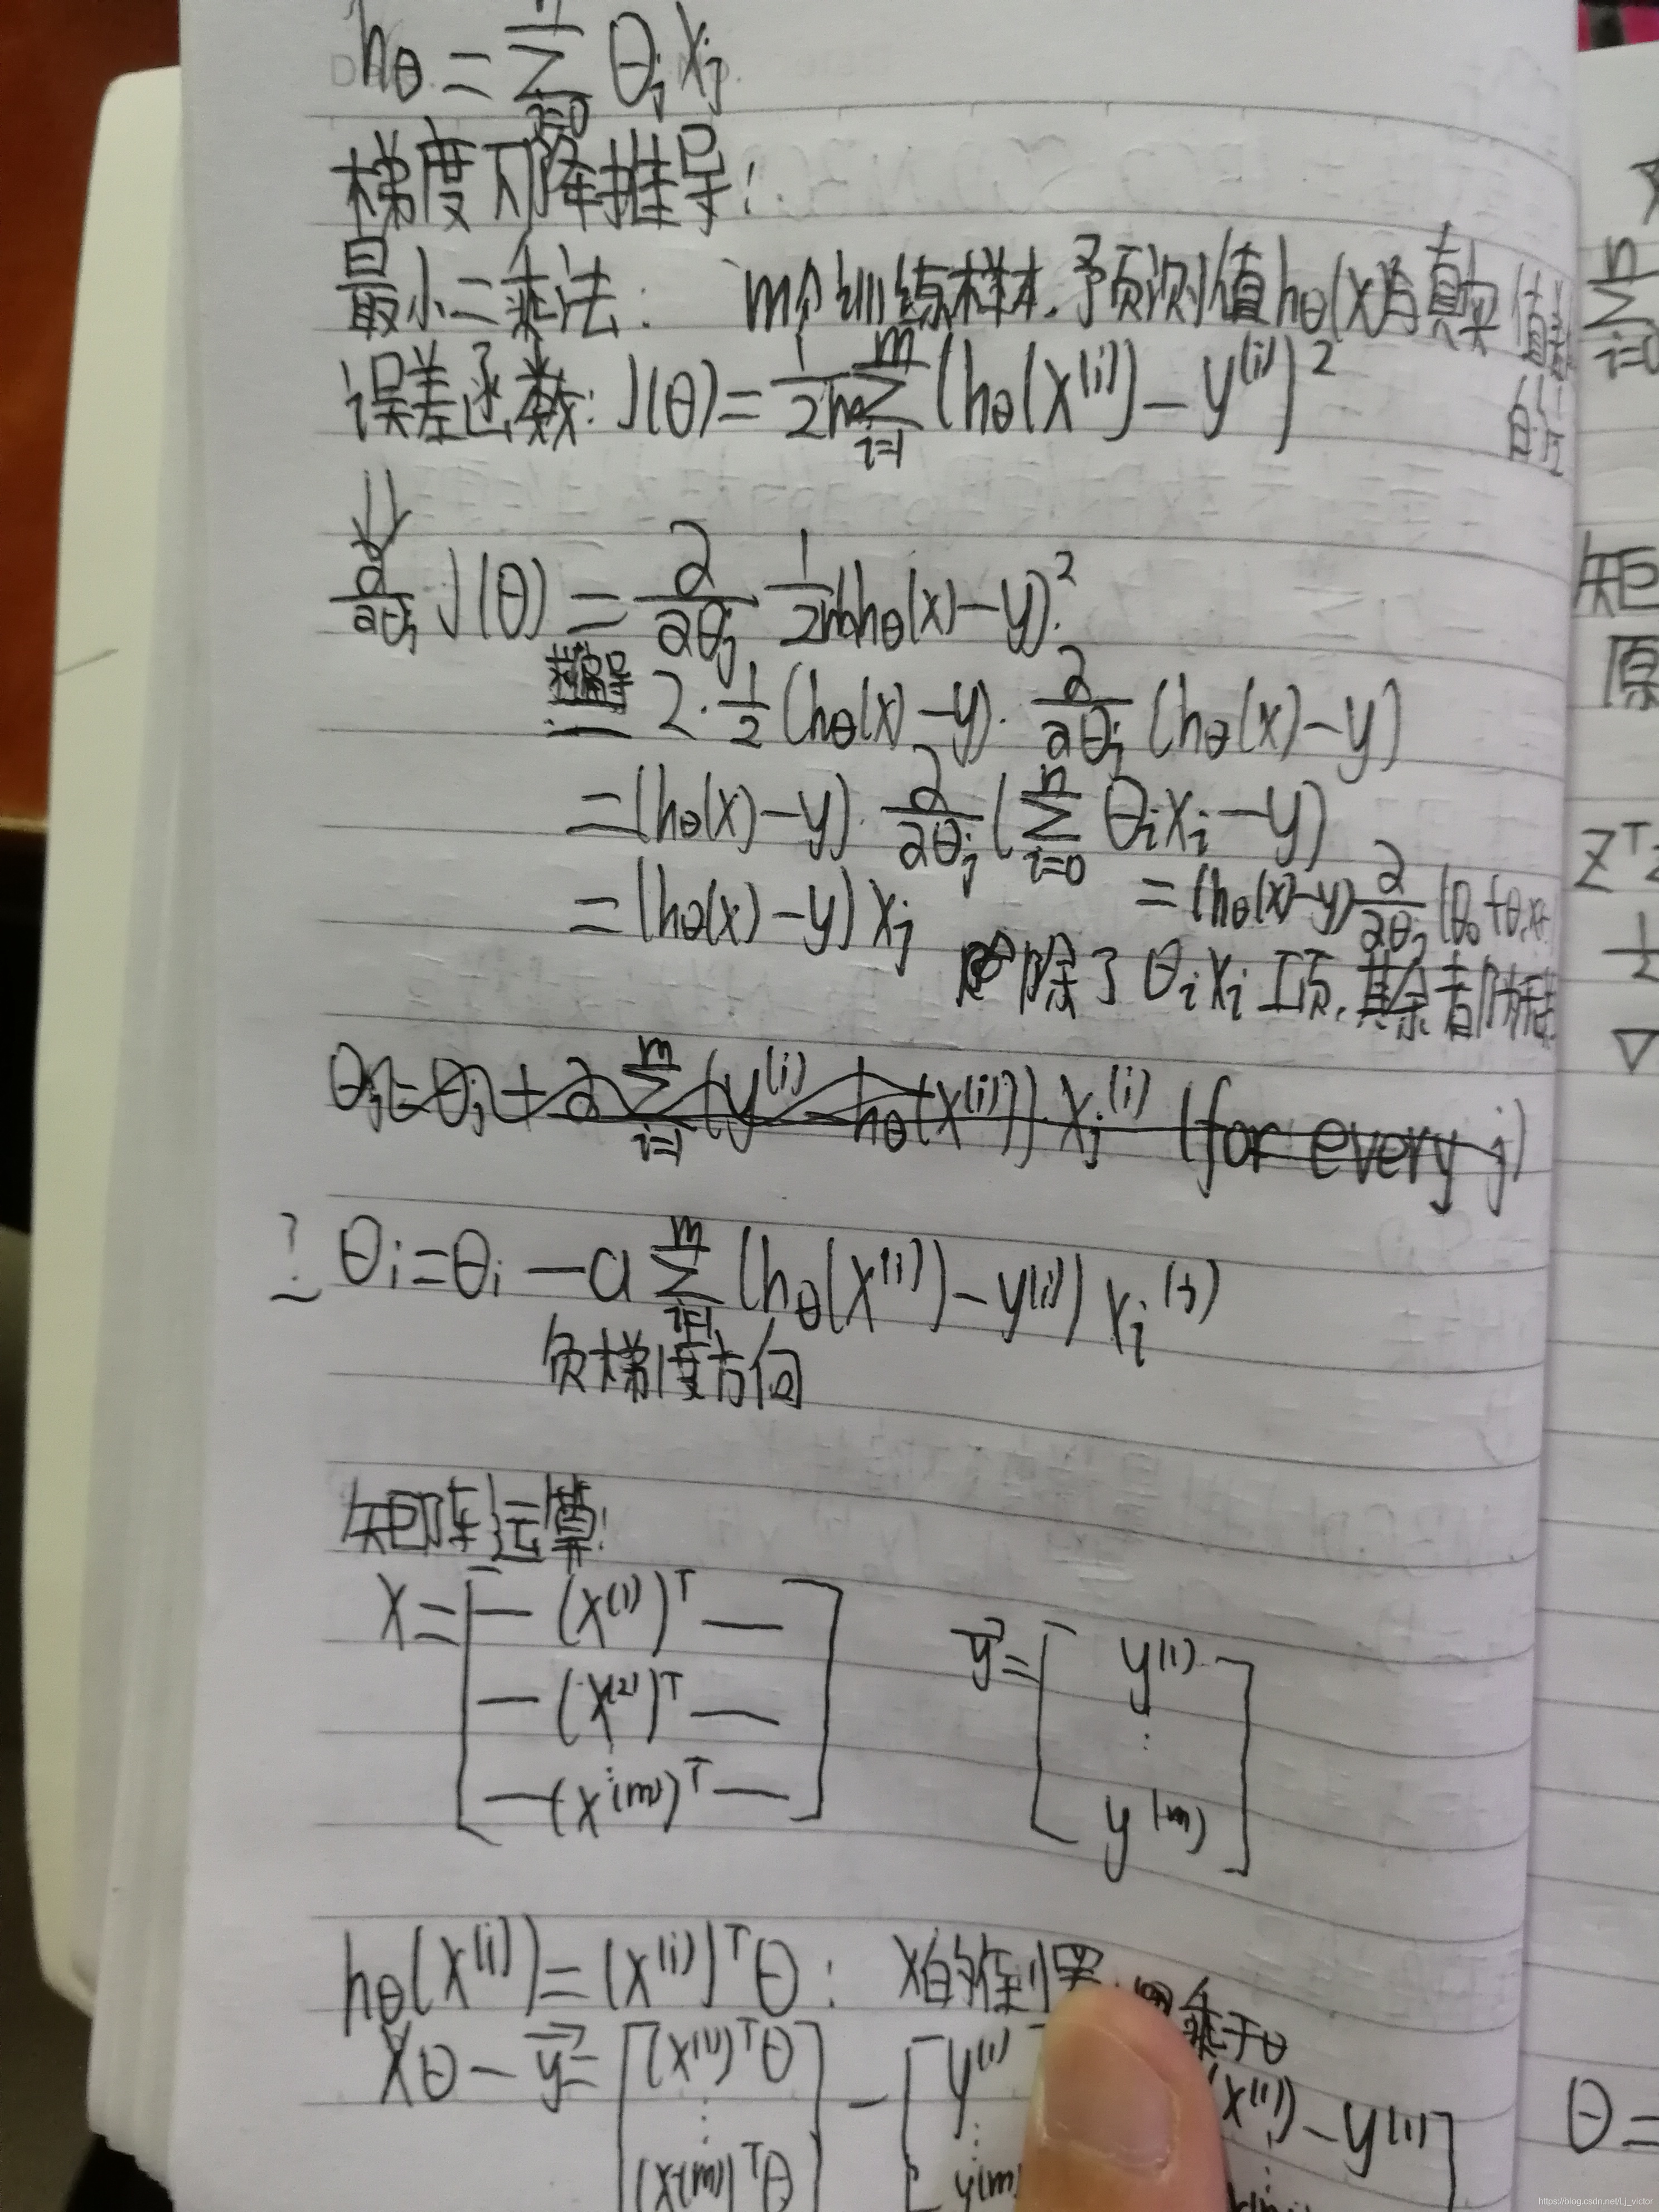 hθ = Σ_{j=0}^{n} θ_j x_j
梯度下降推导:
最小二乘法: m个训练样本.予页测值hθ(x)与真实值
误差函数: J(θ) = 1/2m Σ_{i=1}^{m} (hθ(x^(i)) - y^(i))^2
的
⇓
∂/∂θ_j J(θ) = ∂/∂θ_j 1/2m (hθ(x) - y)^2.
= 2·1/2 (hθ(x) - y)· ∂/∂θ_j (hθ(x) - y)
= (hθ(x) - y)· ∂/∂θ_j (Σ_{i=0}^{n} θ_i x_i - y)
= (hθ(x) - y) x_j
= (hθ(x) - y) ∂/∂θ_j (θ_0 + θ_1 x
除了 θ_i x_i 项, 其余都
θ_j = θ_j + ∂ Σ_{i=1}^{m} (y^(i) - hθ(x^(i))) x_j^(i) (for every j)
? θ_i = θ_i - a Σ_{i=1}^{m} (hθ(x^(i)) - y^(i)) x_i^(j)
负梯度方向
矩阵运算:
X = [ — (x^(1))^T —
— (x^(2))^T —
⋮
— (x^(m))^T — ]
y⃗ = [ y^(1)
⋮
y^(m) ]
hθ(x^(i)) = (x^(i))^T θ : x的 乘于θ
Xθ - y⃗ = [ (x^(1))^T θ
⋮
(x^(m))^T θ ]
- [ y^(1)
⋮
y^(m)
(x^(1)) - y^(1) ]
⋮
Σ_{i=0}^{n}
矩
原
Z^T Z
1/2
▽
θ =
https://blog.csdn.net/Lj_victor